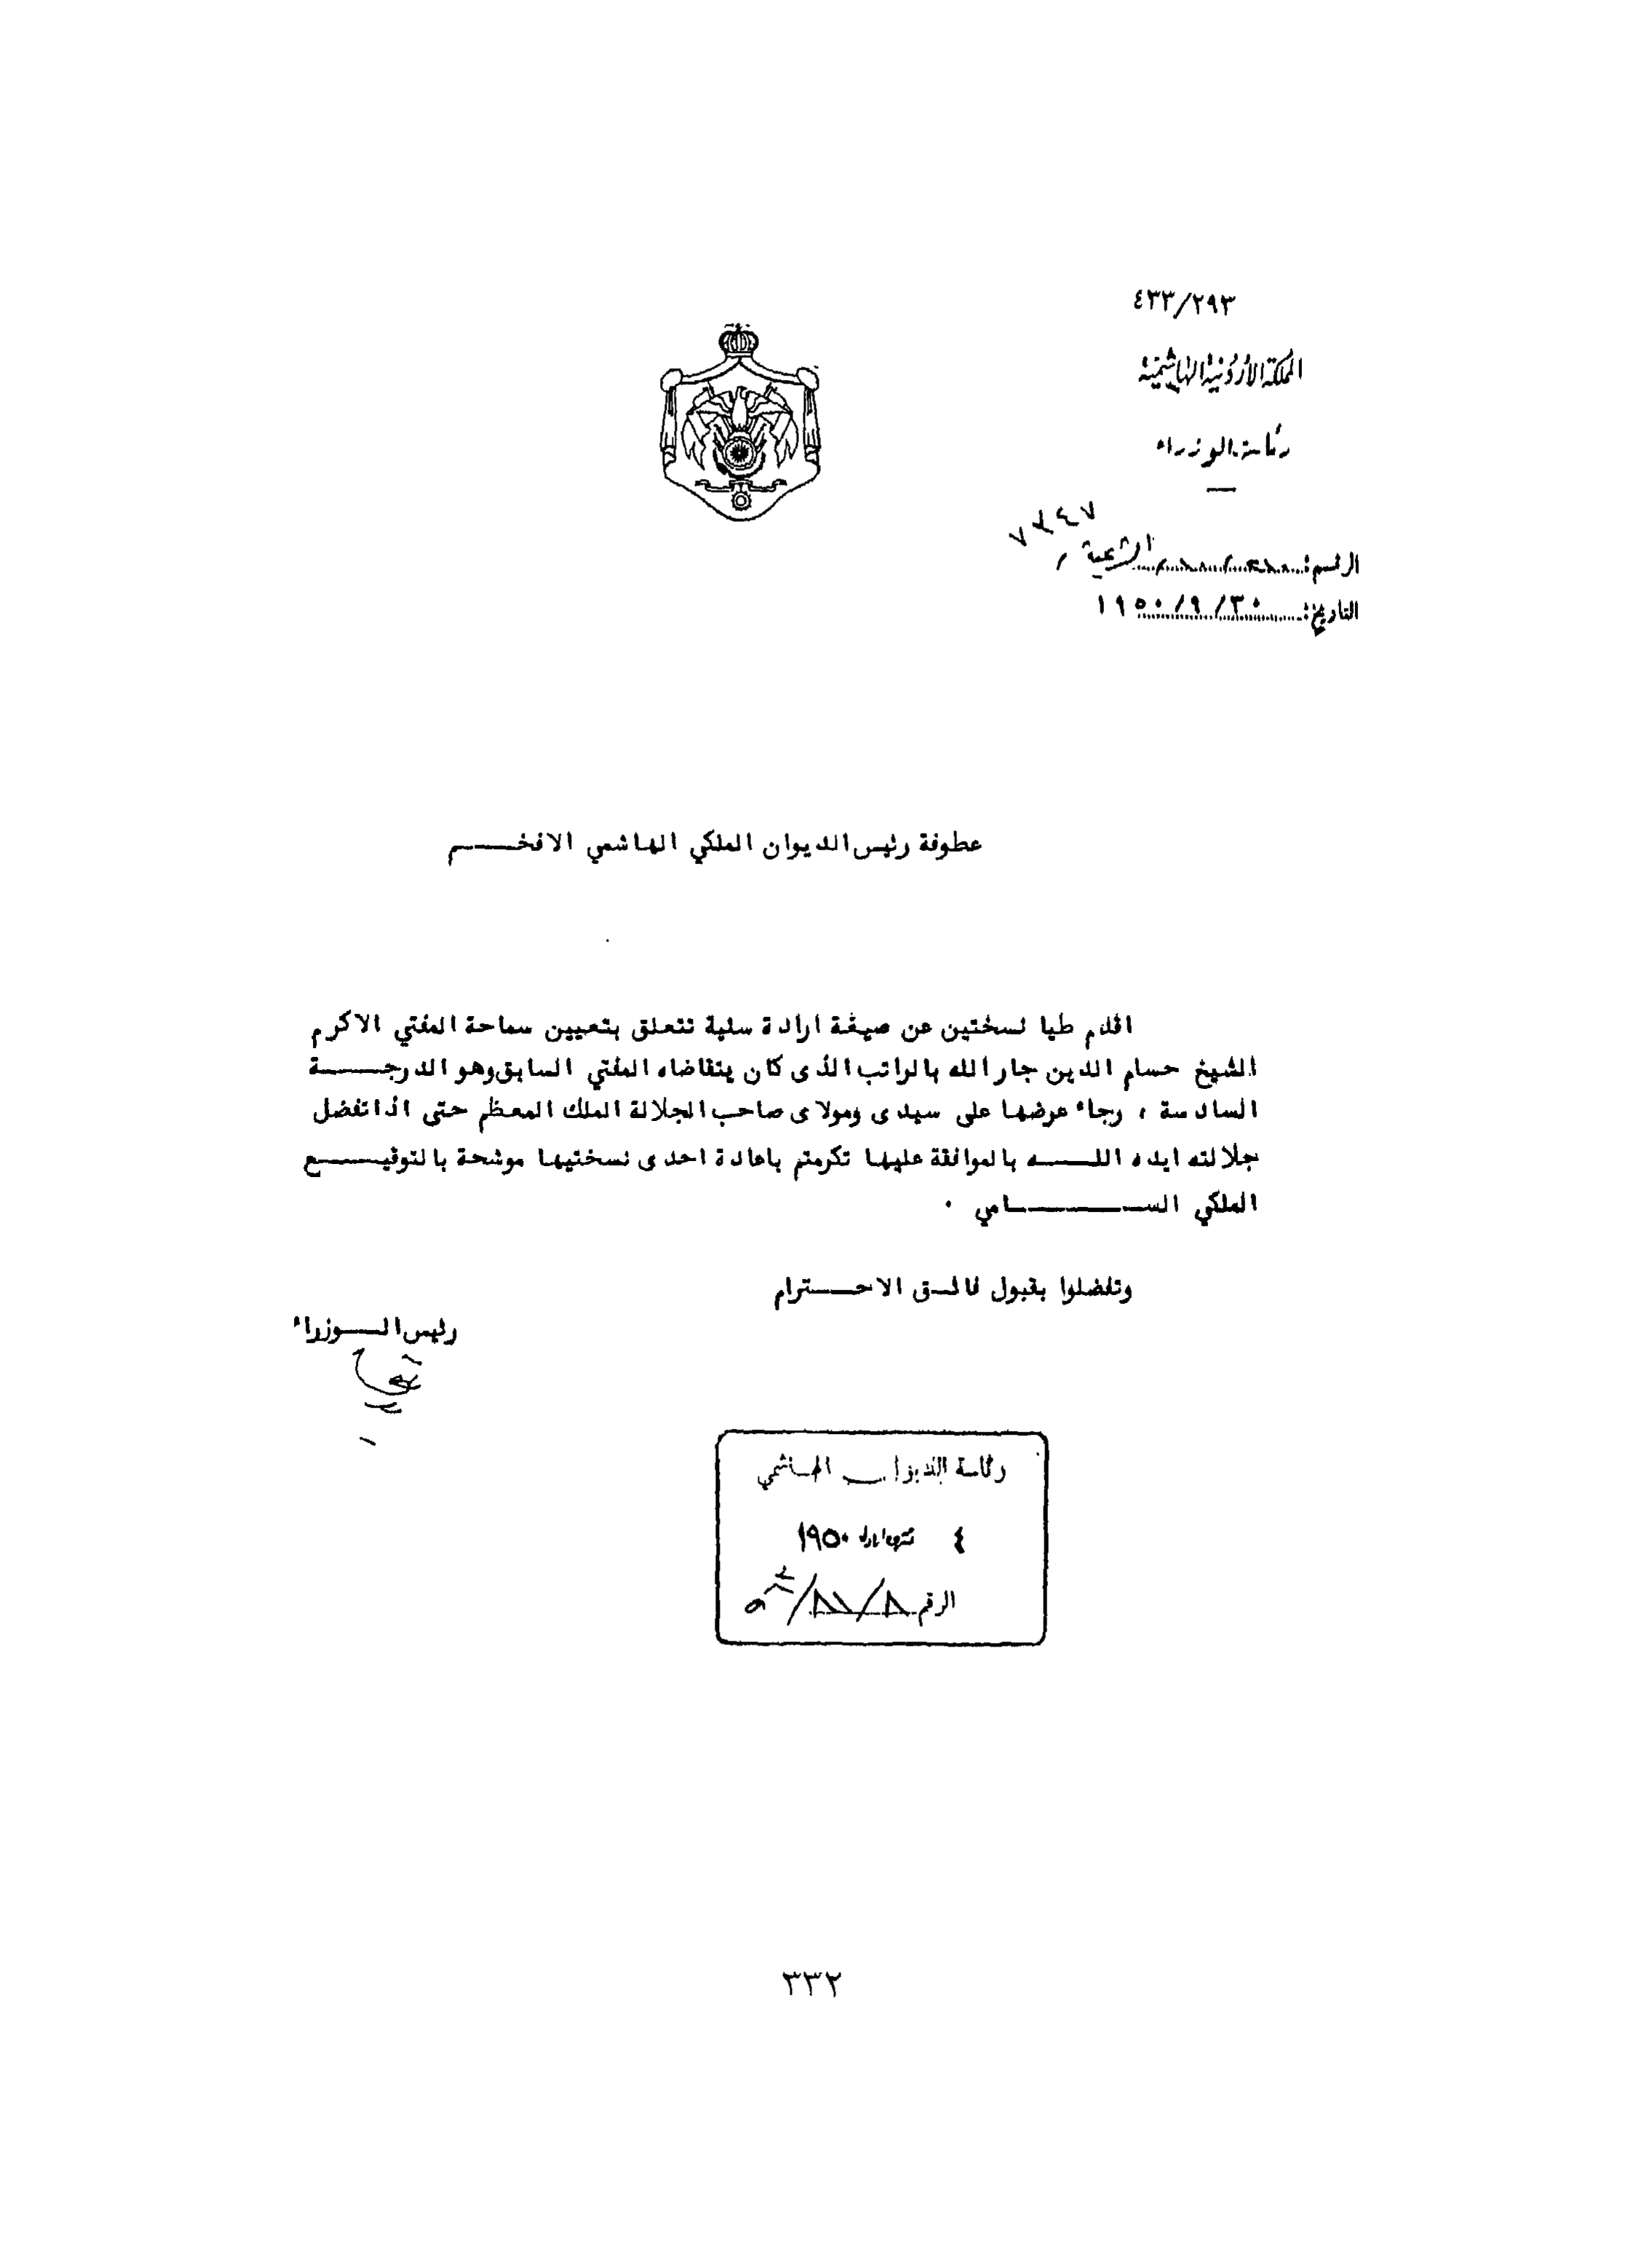 ٤٣٣/٢٩٣
المملكة الأردنية الهاشمية
رئاسة الوزراء
٧٣٤٧
الرقم: الشرعية
التاريخ: ١٩٥٠/٩/٣٠
عطوفة رئيس الديوان الملكي الهاشمي الافخـــــم
اقدم طيا نسختين عن صيغة ارادة سنية تتعلق بتعيين سماحة المفتي الاكرم
الشيخ حسام الدين جار الله بالراتب الذى كان يتقاضاه المفتي السابق وهو الدرجـــــة
السادسة ، رجاء عرضها على سيدى ومولاى صاحب الجلالة الملك المعظم حتى اذا تفضل
جلالته ايده اللـــــه بالموافقة عليها تكرمتم باعادة احدى نسختيها موشحة بالتوقيـــــع
الملكي الســـــــامي .
وتفضلوا بقبول فائـق الاحـــترام
رئيس الـــوزراء
رئاسة الديوان الهاشمي
٤ تشرين اول ١٩٥٠
الرقم
٣٣٢